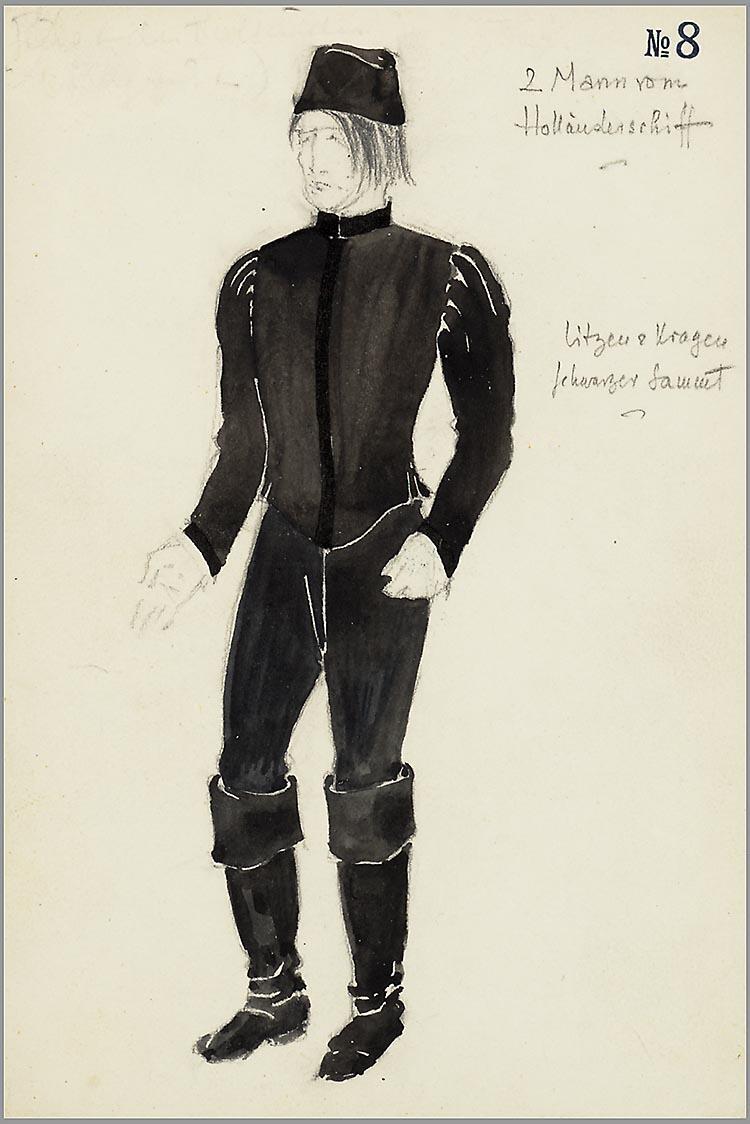 № 8
2 Mann vom
Holländerschiff
Litzen & Kragen
schwarzer Sammt